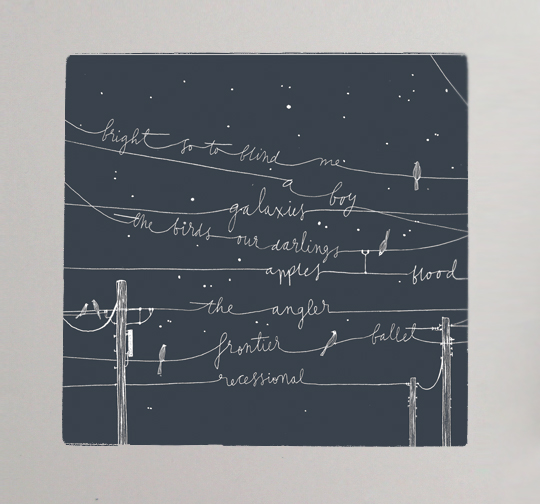 bright so to blind me
a boy
galaxies
the birds our darlings
apples flood
the angler
frontier ballet
recessional